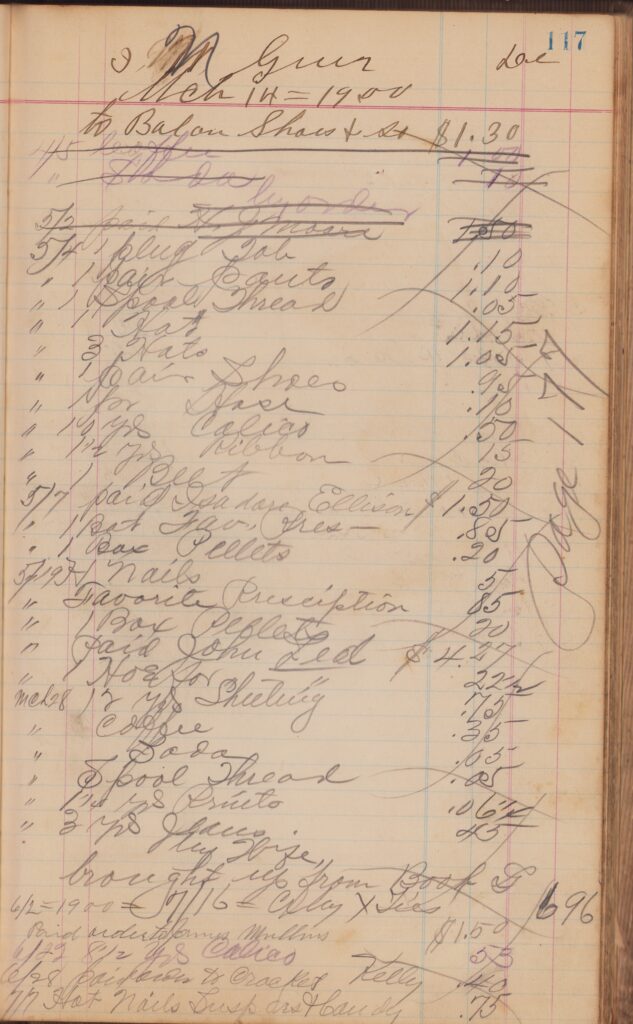 117
J M Greer Dec
Mch 14 = 1900
to Balan Shoes & $1.30
4/5 Coffee 1.00
" 10
by order
5/2 paid Moore 1.50
5/4 1 plug Tob .10
" 1 pair Pants 1.10
" 1 Spool Thread .05
" 1 Hat 1.15
" 3 Hats 1.05
" 1 Pair Shoes .95
" 1 pr Hose .10
" 10 yds Calico .50
" 1 1/2 yds Ribbon 15
" 1 Belt 20
5/7 paid Isadora Ellison $1.50
" 1 Bot Fav. Pres- .85
" 1 Box Pellets .20
5/19 Nails 5
" Favorite Presciption 85
" 1 Box Pellets 20
" Paid John Led $4.27
" 1 Hoe for 22 1/2
Mch 28 12 yds Sheeting .75
" Coffee .35
" Soda .05
" Spool Thread .05
" yds Prints .06 1/4
" 3 yds Jeans 45
by Hose
brought up from Book G
6/2 = 1900 = 7/16 = Clay X Ties 696
Paid order to Mullins $1.50
6/22 8 1/2 yds Calico 53
6/28 paid order to Kelly .40
7/7 Hat Nails & Candy .75
Page 177